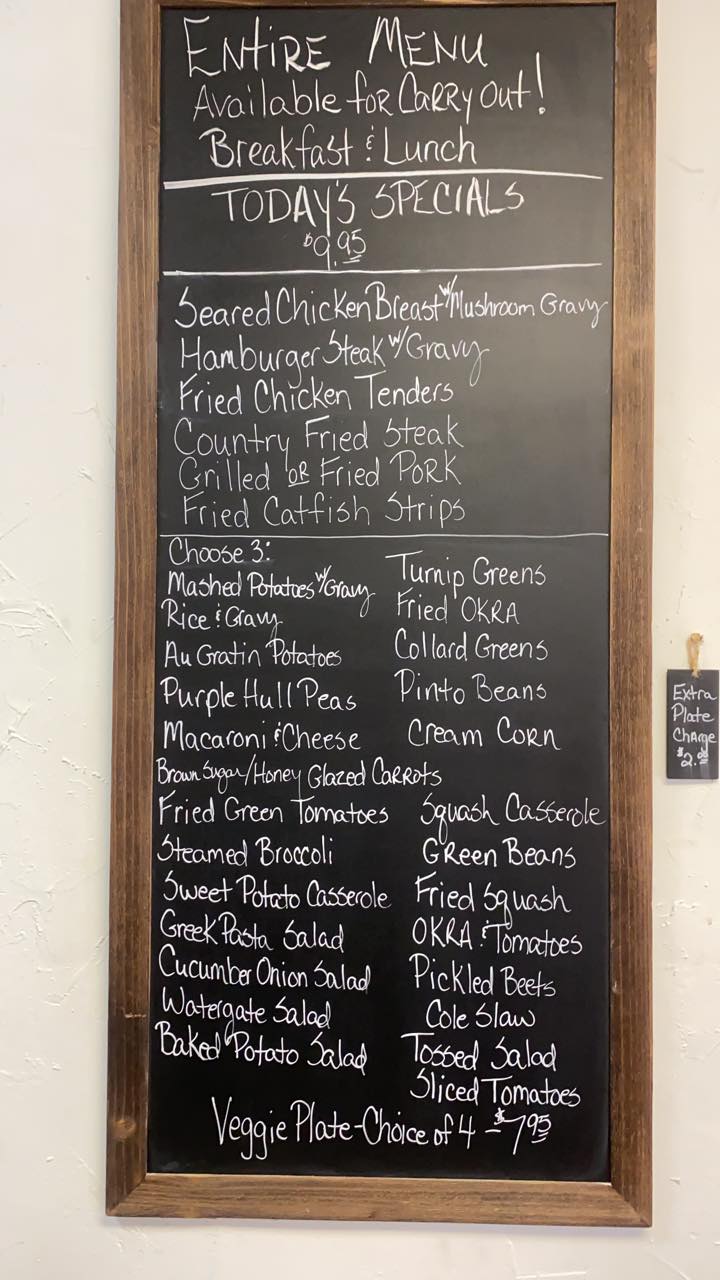 ENTIRE MENU
Available for Carry Out!
Breakfast & Lunch
TODAY'S SPECIALS
$9.95
Seared Chicken Breast w/ Mushroom Gravy
Hamburger Steak w/ Gravy
Fried Chicken Tenders
Country Fried Steak
Grilled OR Fried Pork
Fried Catfish Strips
Choose 3:
Mashed Potatoes w/ Gravy
Rice & Gravy
Au Gratin Potatoes
Purple Hull Peas
Macaroni & Cheese
Brown Sugar/Honey Glazed Carrots
Fried Green Tomatoes
Steamed Broccoli
Sweet Potato Casserole
Greek Pasta Salad
Cucumber Onion Salad
Watergate Salad
Baked Potato Salad
Turnip Greens
Fried OKRA
Collard Greens
Pinto Beans
Cream Corn
Squash Casserole
Green Beans
Fried Squash
OKRA & Tomatoes
Pickled Beets
Cole Slaw
Tossed Salad
Sliced Tomatoes
Veggie Plate-Choice of 4 - $7.95
Extra
Plate
Charge
$2.00